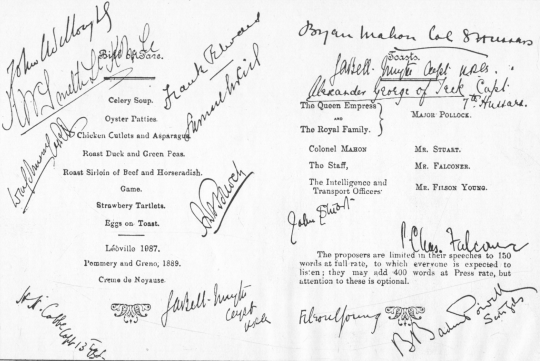 Bill of Fare.
Celery Soup.
Oyster Patties.
Chicken Cutlets and Asparagus.
Roast Duck and Green Peas.
Roast Sirloin of Beef and Horseradish.
Game.
Strawbery Tartlets.
Eggs on Toast.
Léoville 1987.
Pommery and Greno, 1889.
Creme de Noyause
John Willoughby
Frank Edward
Gaskell-
Capt
Bryan Mahon Col 8 Hussars
Toasts.
Gaskell- Capt
Alexander George of Teck Capt.
7th Hussars
The Queen Empress
AND
The Royal Family.
Major Pollock.
Colonel Mahon Mr. Stuart.
The Staff, Mr. Falconer.
The Intelligence and
Transport Officers
Mr. Filson Young.
John Stuart
Chas. Falconer
The proposers are limited in their speeches to 150
words at full rate, to which everyone is expected to
listen; they may add 400 words at Press rate, but
attention to these is optional.
Filson Young
Baden Powell